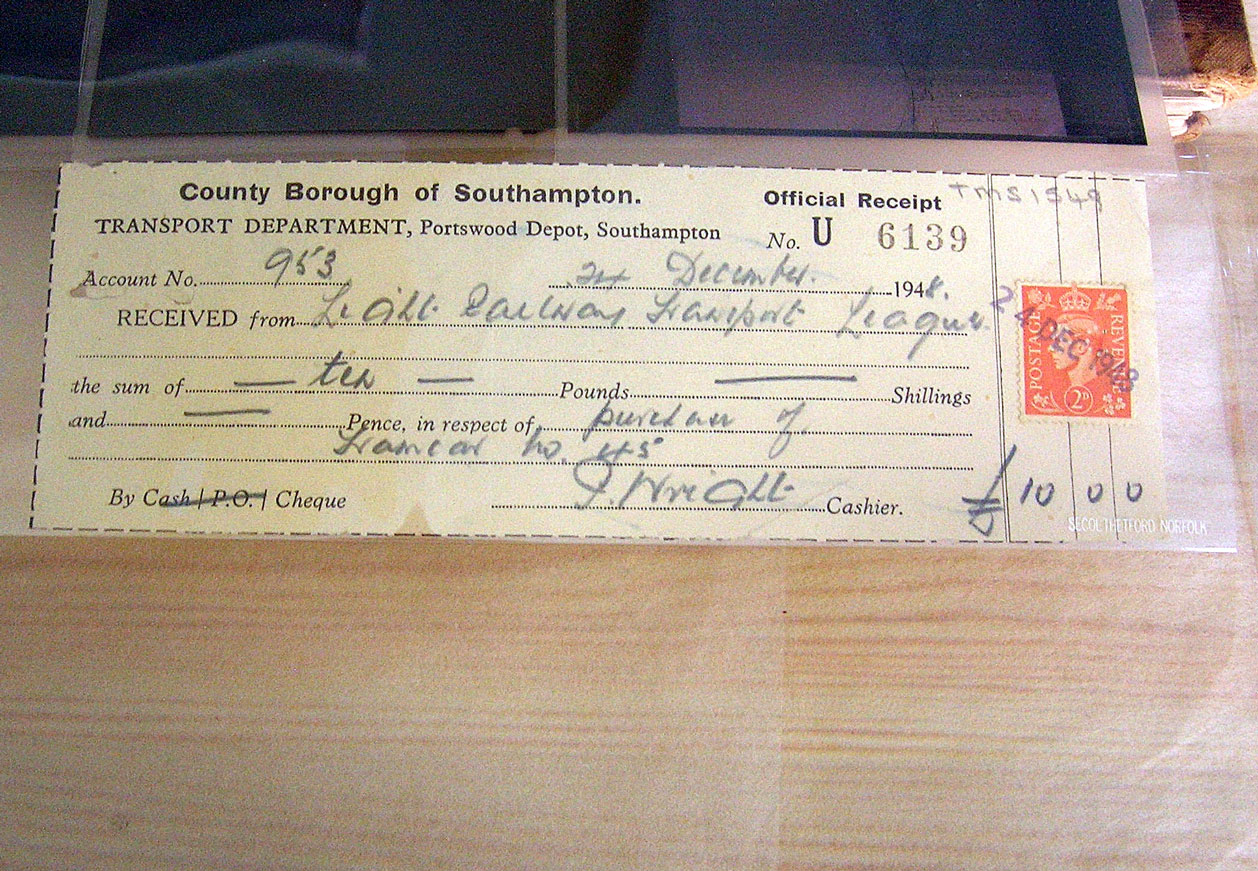 County Borough of Southampton.
Official Receipt
TMS1549
TRANSPORT DEPARTMENT, Portswood Depot, Southampton
No. U 6139
Account No. 953
24 December. 1948.
RECEIVED from Light Railway Transport League.
the sum of — ten — Pounds — Shillings
and — Pence, in respect of purchase of
Tramcar no. 45
By Cash | P.O. | Cheque
J. Wright Cashier.
£ 10 0 0
POSTAGE REVENUE
2D
24 DEC 1948
SECOL THETFORD NORFOLK